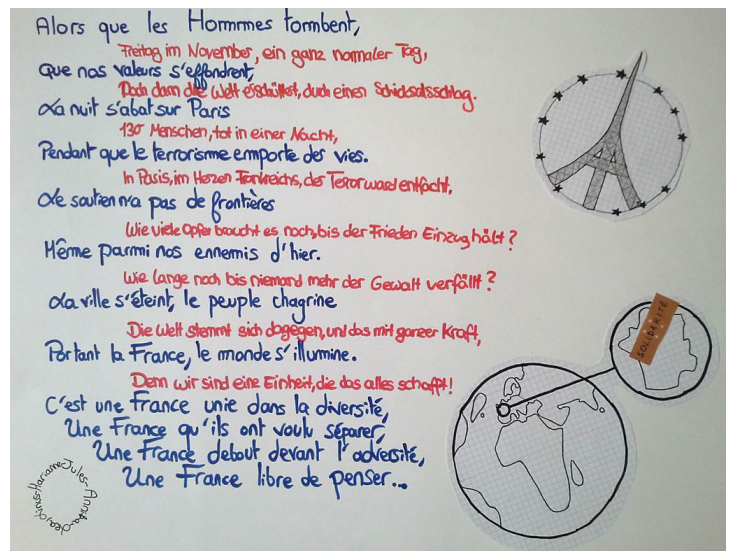 Alors que les Hommes tombent,
Freitag im November, ein ganz normaler Tag,
Que nos valeurs s'effondrent,
Doch dann die Welt erschüttert, durch einen Schicksalsschlag.
La nuit s'abat sur Paris
130 Menschen, tot in einer Nacht,
Pendant que le terrorisme emporte des vies.
In Paris, im Herzen Frankreichs, der Terror ward entfacht,
Le soutien n'a pas de frontières
Wie viele Opfer braucht es noch, bis der Frieden Einzug hält?
Même parmi nos ennemis d'hier.
Wie lange noch bis niemand mehr der Gewalt verfällt?
La ville s'éteint, le peuple chagrine
Die Welt stemmt sich dagegen, und das mit ganzer Kraft,
Portant la France, le monde s'illumine.
Denn wir sind eine Einheit, die das alles schafft!
C'est une France unie dans la diversité,
Une France qu'ils ont voulu séparer,
Une France debout devant l'adversité,
Une France libre de penser...
SOLIDARITÉ
Marianne-Jules-Anna-